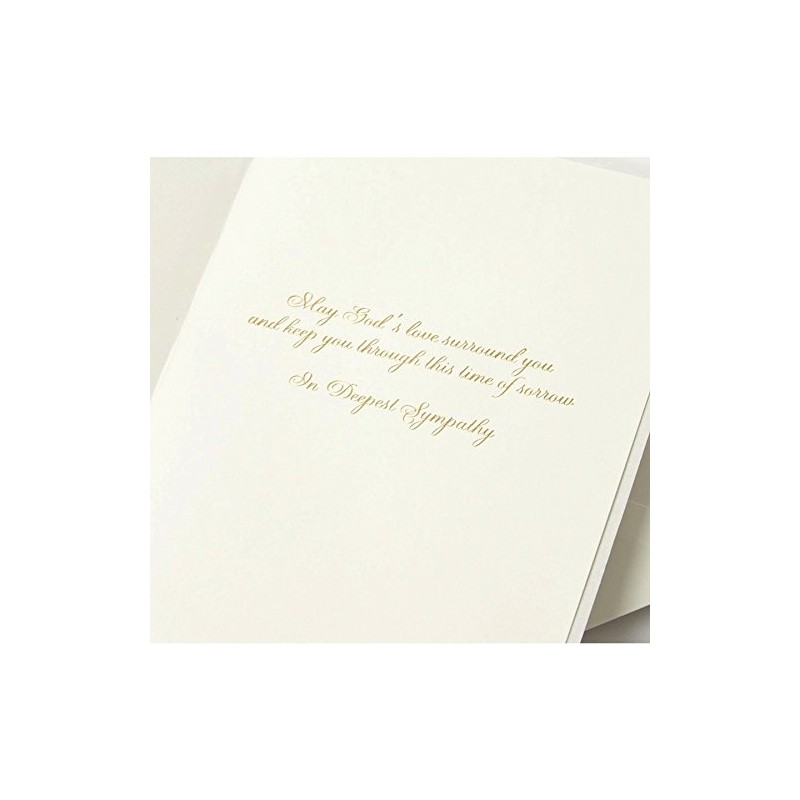 May God's love surround you
and keep you through this time of sorrow.
In Deepest Sympathy